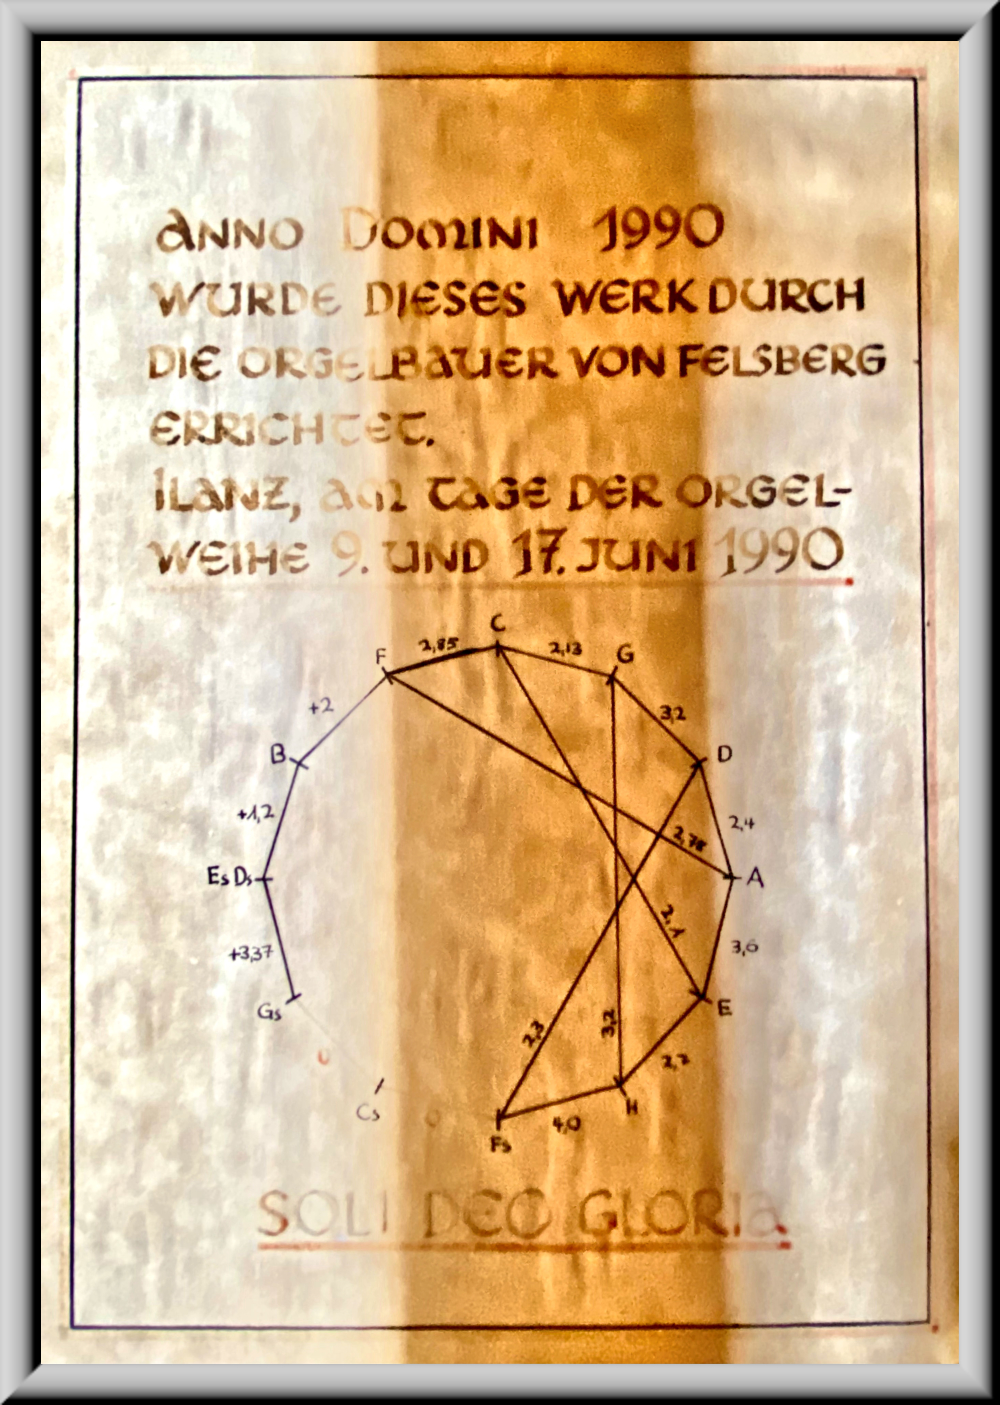 ANNO DOMINI 1990
WURDE DIESES WERK DURCH
DIE ORGELBAUER VON FELSBERG
ERRICHTET.
ILANZ, AM TAGE DER ORGEL-
WEIHE 9. UND 17. JUNI 1990
C
F 2,85 2,13 G
+2 3,2
B D
+1,2 2,4
2,78
Es Ds A
2,1
+3,37 3,6
Gs E
2,3 3,2
0 2,2
Cs H
0 4,0
Fs
SOLI DEO GLORIA